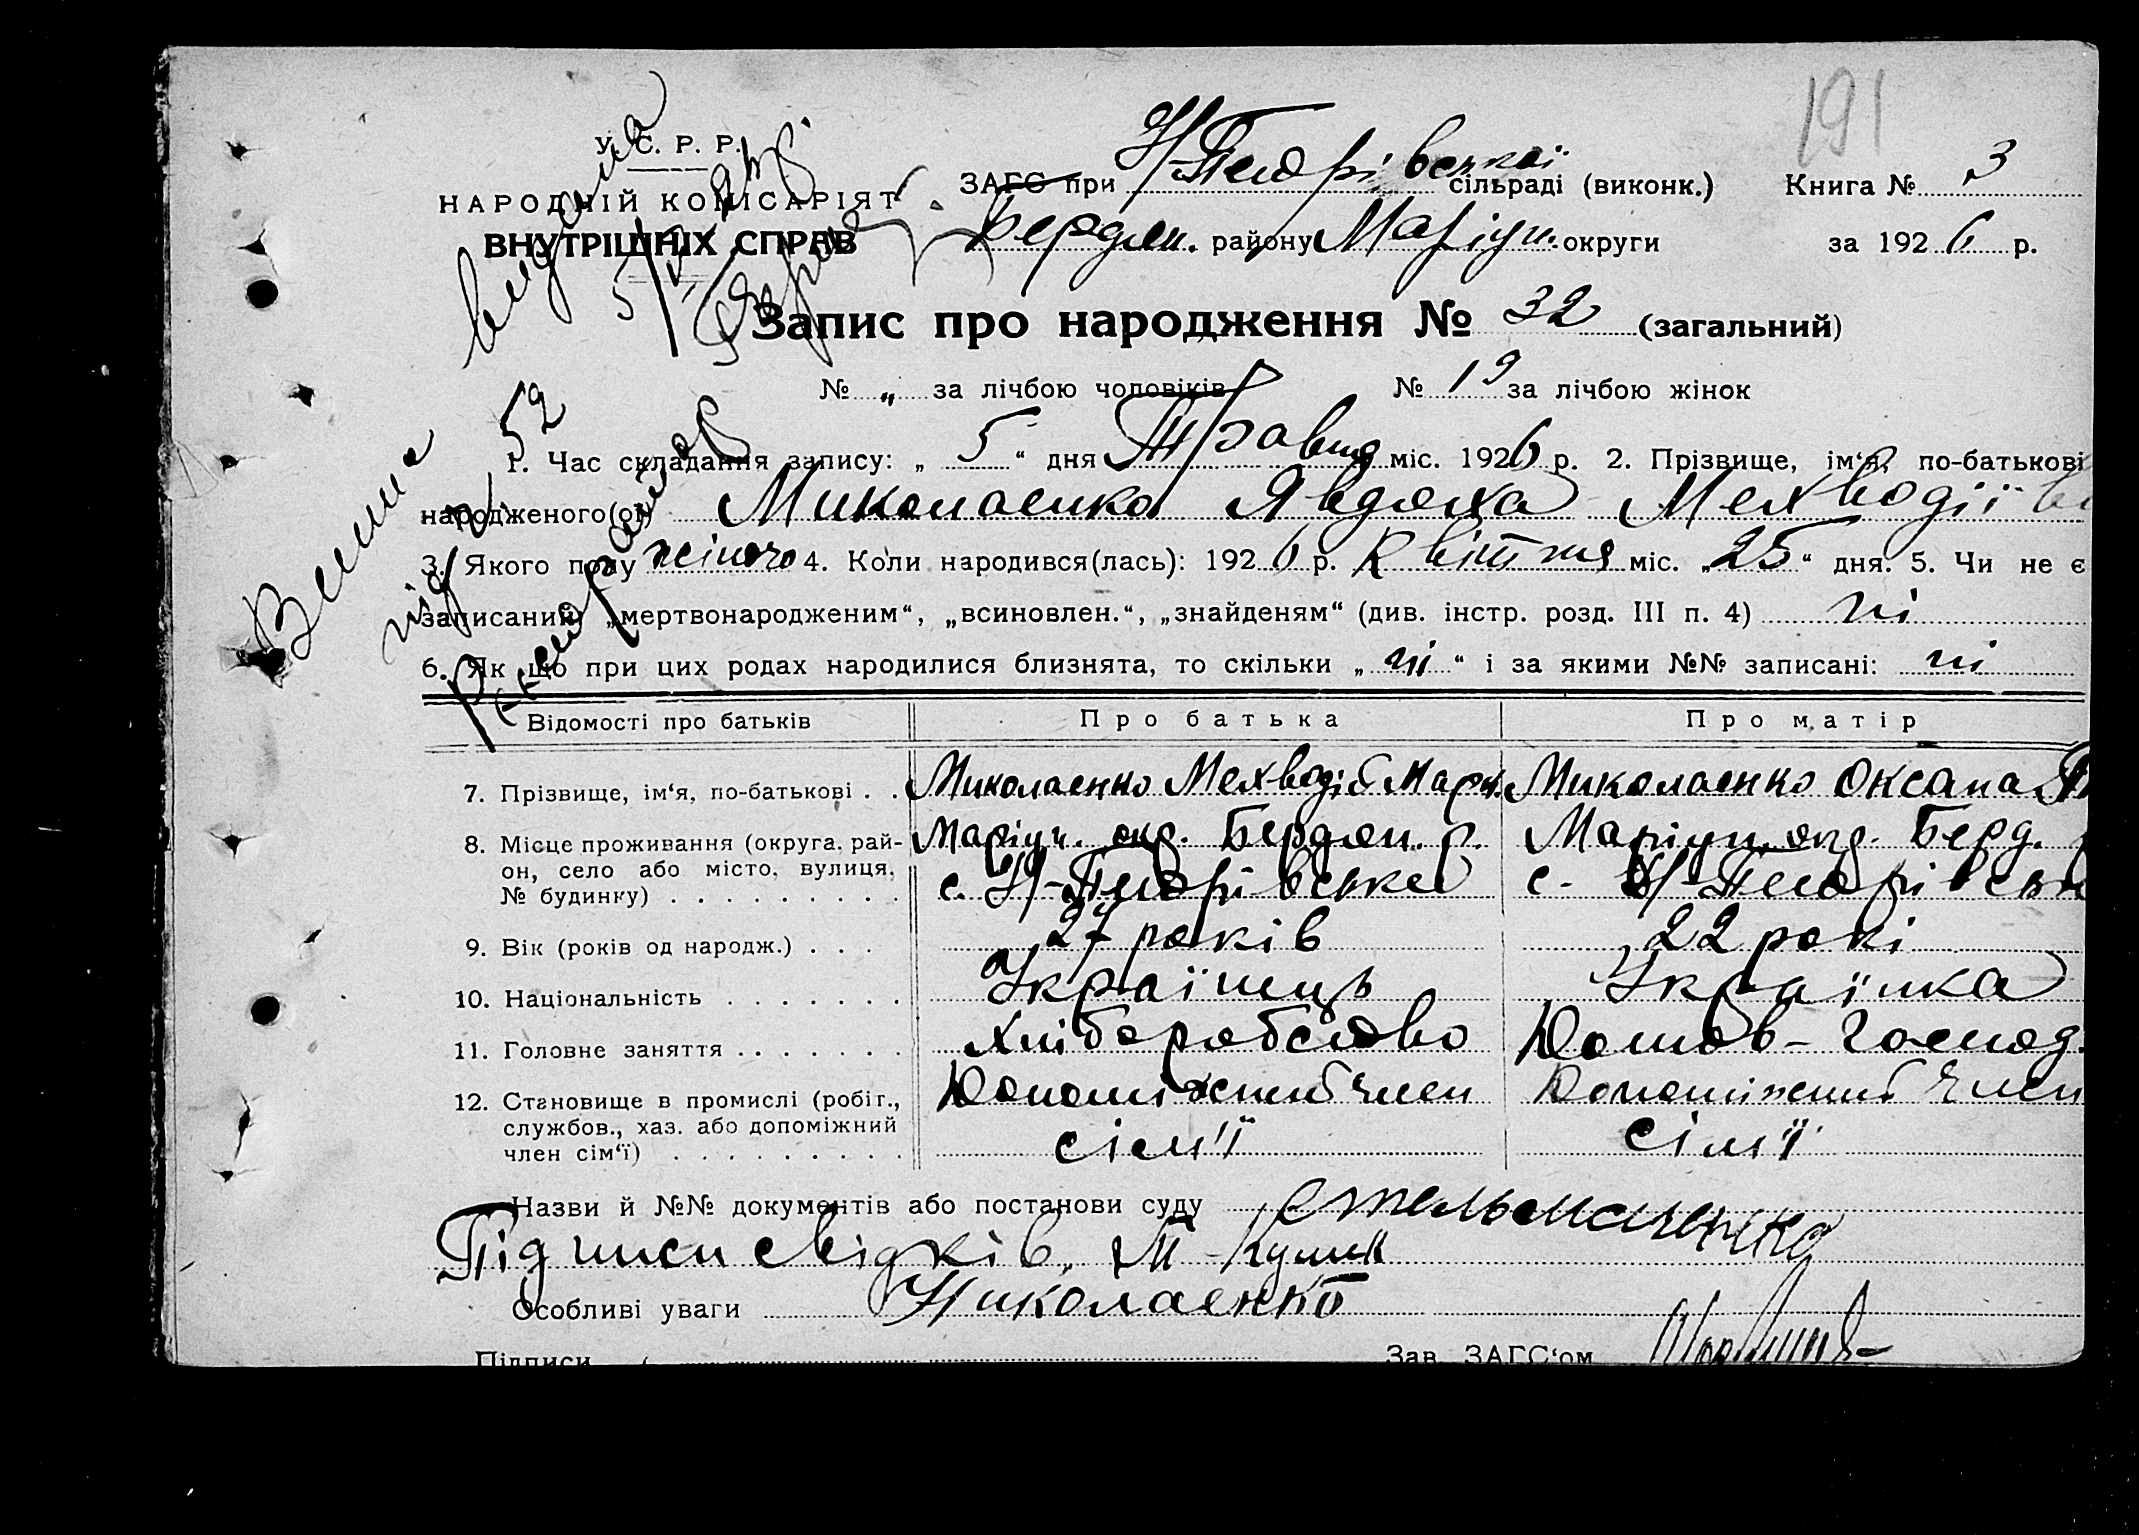 191
У. С. Р. Р.
НАРОДНІЙ КОМІСАРІЯТ
ВНУТРІШНІХ СПРАВ
ЗАГС при Н-Петрівській сільраді (виконк.) Книга № 3
Бердян. району Маріуп. округи за 1926 р.
Запис про народження № 32 (загальний)
№ „ за лічбою чоловіків № 19 за лічбою жінок
1. Час складання запису: „ 5 “ дня Травня міс. 1926 р. 2. Прізвище, ім‘я, по-батькові
народженого(ої) Миколаенко Явдоха Мехводіїв
3. Якого полу жіночо 4. Коли народився(лась): 1926 р. Квітня міс. „25“ дня. 5. Чи не є
записаний „мертвонародженим“, „всиновлен.“, „знайденям“ (див. інстр. розд. III п. 4) ні
6. Як що при цих родах народилися близнята, то скільки „ ні “ і за якими №№ записані: ні
Відомості про батьків Про батька Про матір
7. Прізвище, ім‘я, по-батькові . . Миколаенко Мехводій Марк. Миколаенко Оксана
8. Місце проживання (округа, рай- Маріуп. окр. Бердян. р. Маріуп. окр. Берд.
он, село або місто, вулиця, с. Н-Петрівське с. Н-Петрівськ
№ будинку) . . . . . . . . .
9. Вік (років од народж.) . . . 27 років 22 рокі
10. Національність . . . . . . . Українець Українка
11. Головне заняття . . . . . . . Хліборобство Домов-Господ.
12. Становище в промислі (робіт., Допоміжний член Допоміжний член
службов., хаз. або допоміжний сім'ї сім'ї
член сім‘ї) . . . . . . . . .
Назви й №№ документів або постанови суду
Підписи свідків, М Кулик
Особливі уваги Николаенко
Підписи Зав. ЗАГС‘ом